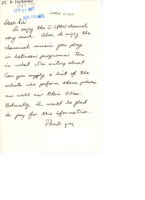 Dear Sir
I enjoy the C-SPAN channel
very much. Also I enjoy the
classical music you play
in between programs. This
is what I'm writing about.
Can you supply a list of the
artists who perform these
as well as their titles.
Naturally, I would be glad
to pay for this information.
Thank you